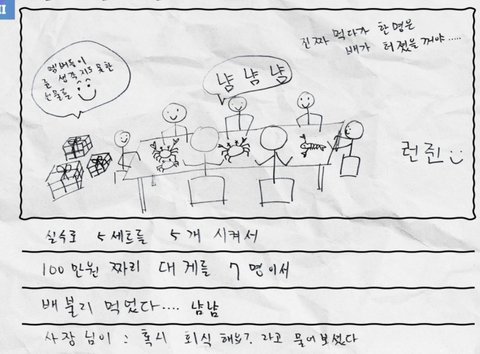 진짜 먹다가 한 명은
배가 터졌을 꺼야.....
멤버들이
생각지도 못한
선물들
냠 냠 냠
런쥔
실수로 5세트를 5개 시켜서
100만원 짜리 대게를 7명이서
배불리 먹었다.... 냠냠
사장님이 : 혹시 회식 해요? 라고 물어보셨다